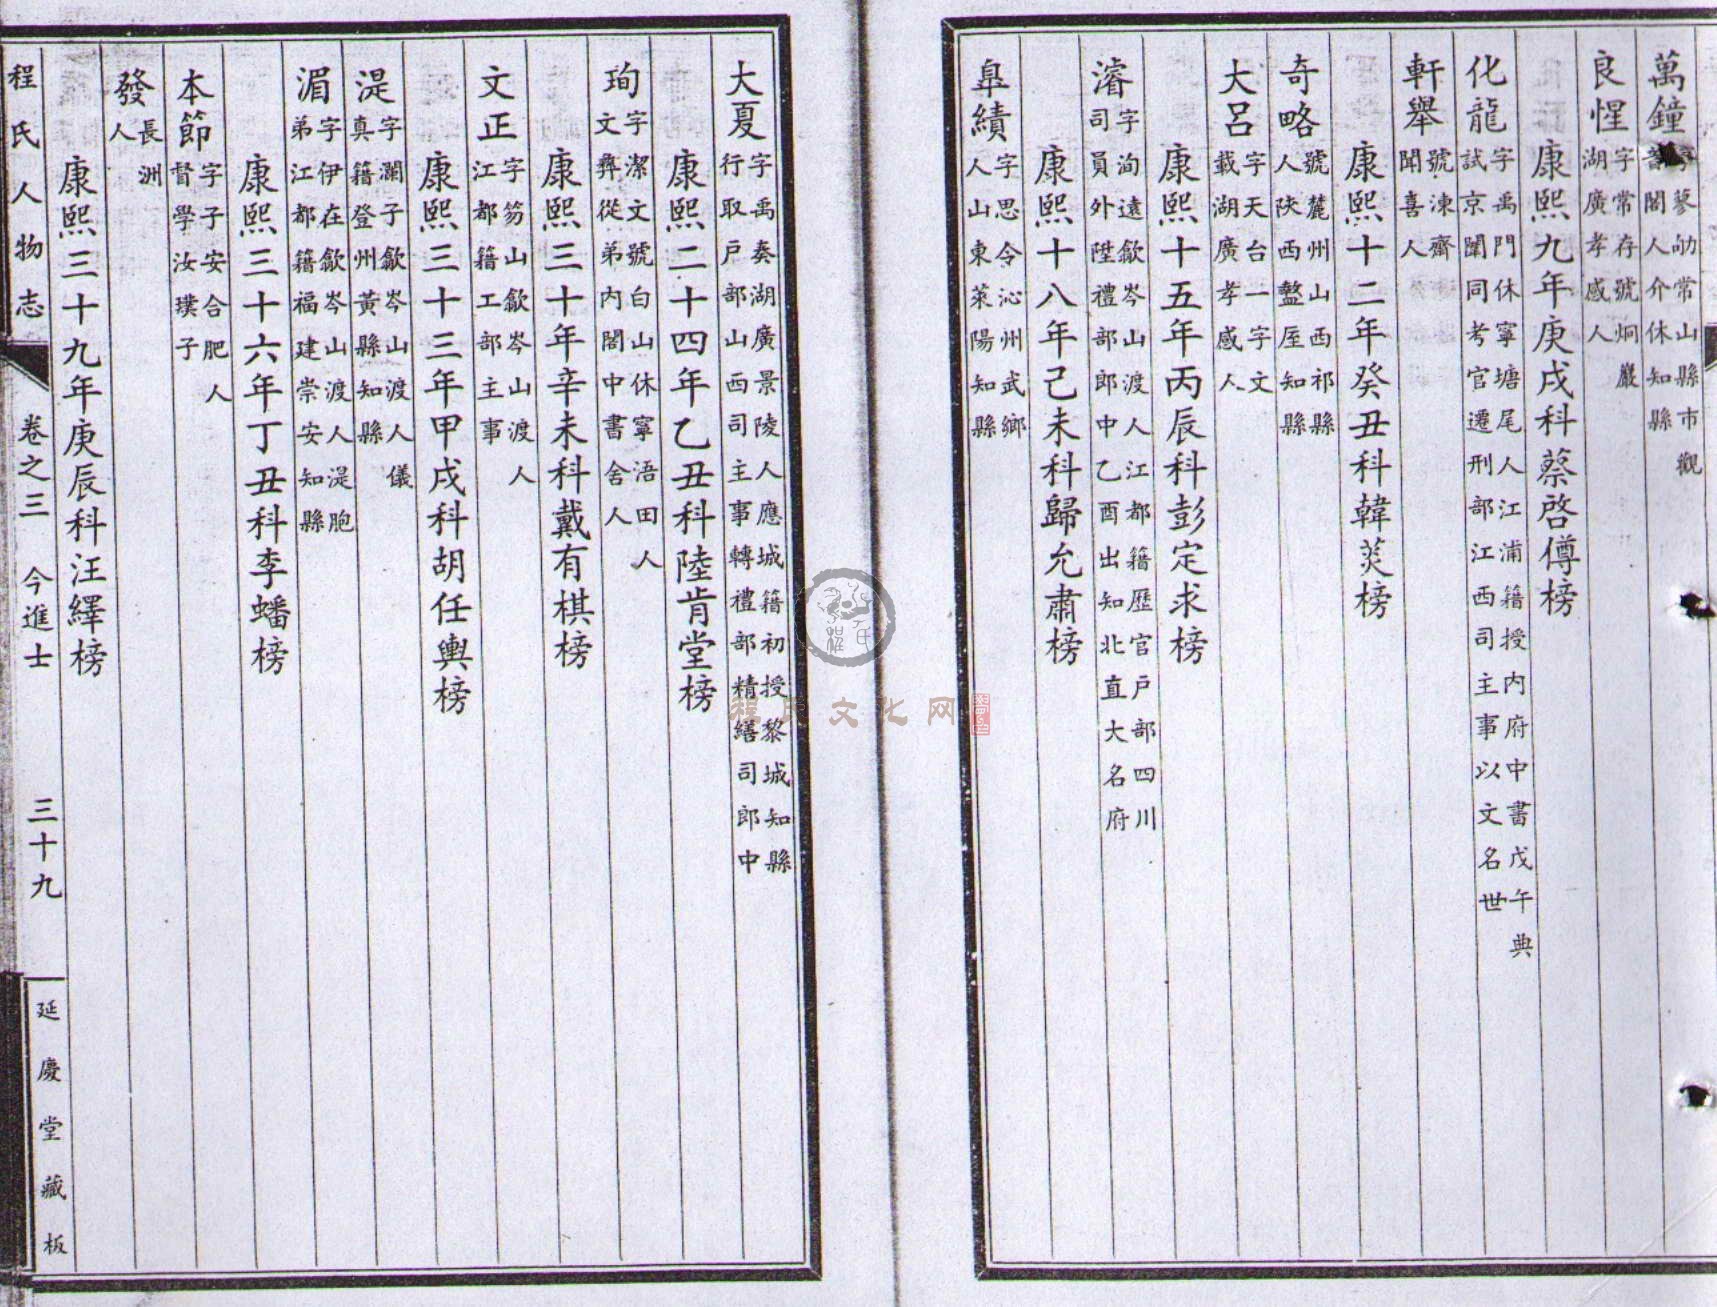 萬鐘 字蓼劬常山縣市觀
人介休知縣
良惺 字常存號炯巖
湖廣孝感人
康熙九年庚戌科蔡啓僔榜
化龍 字禹門休寧塘尾人江浦籍授内府中書戊午典
試京闈同考官遷刑部江西司主事以文名世
軒舉 號涑齋
聞喜人
康熙十二年癸丑科韓菼榜
奇略 號麓州山西祁縣
人陝西盩厔知縣
大呂 字天台一字文
載湖廣孝感人
康熙十五年丙辰科彭定求榜
濬 字洵遠歙岑山渡人江都籍歷官戶部四川
司員外陞禮部郎中乙酉出知北直大名府
康熙十八年己未科歸允肅榜
臯績 字思令沁州武鄉
人山東萊陽知縣
大夏 字禹奏湖廣景陵人應城籍初授黎城知縣
行取戶部山西司主事轉禮部精繕司郎中
康熙二十四年乙丑科陸肯堂榜
珣 字潔文號白山休寧浯田人
文彝從弟内閣中書舍人
康熙三十年辛未科戴有棋榜
文正 字笏山歙岑山渡人
江都籍工部主事
康熙三十三年甲戌科胡任輿榜
湜 字瀾子歙岑山渡人儀
真籍登州黃縣知縣
湄 字伊在歙岑山渡人湜胞
弟江都籍福建崇安知縣
康熙三十六年丁丑科李蟠榜
本節 字子安合肥人
督學汝璞子
發 長洲
人
康熙三十九年庚辰科汪繹榜
程氏人物志 卷之三 今進士 三十九 延慶堂藏板
程氏文化网